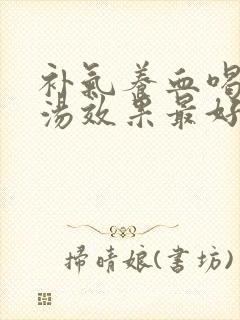 补氣養血喝
湯效果最好
掃晴娘(書坊)